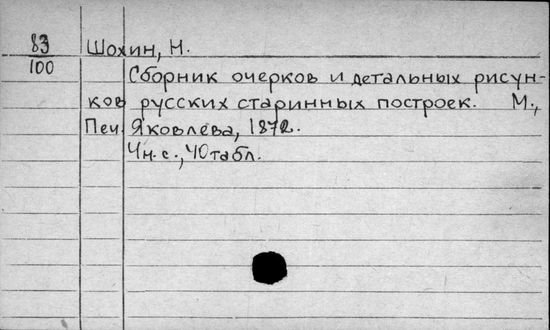 83 Шохин, Н.
100
Сборник очерков и детальных рисун-
ков русских старинных построек. М.,
Печ. Яковлева, 1872.
4н.с., 40 табл.